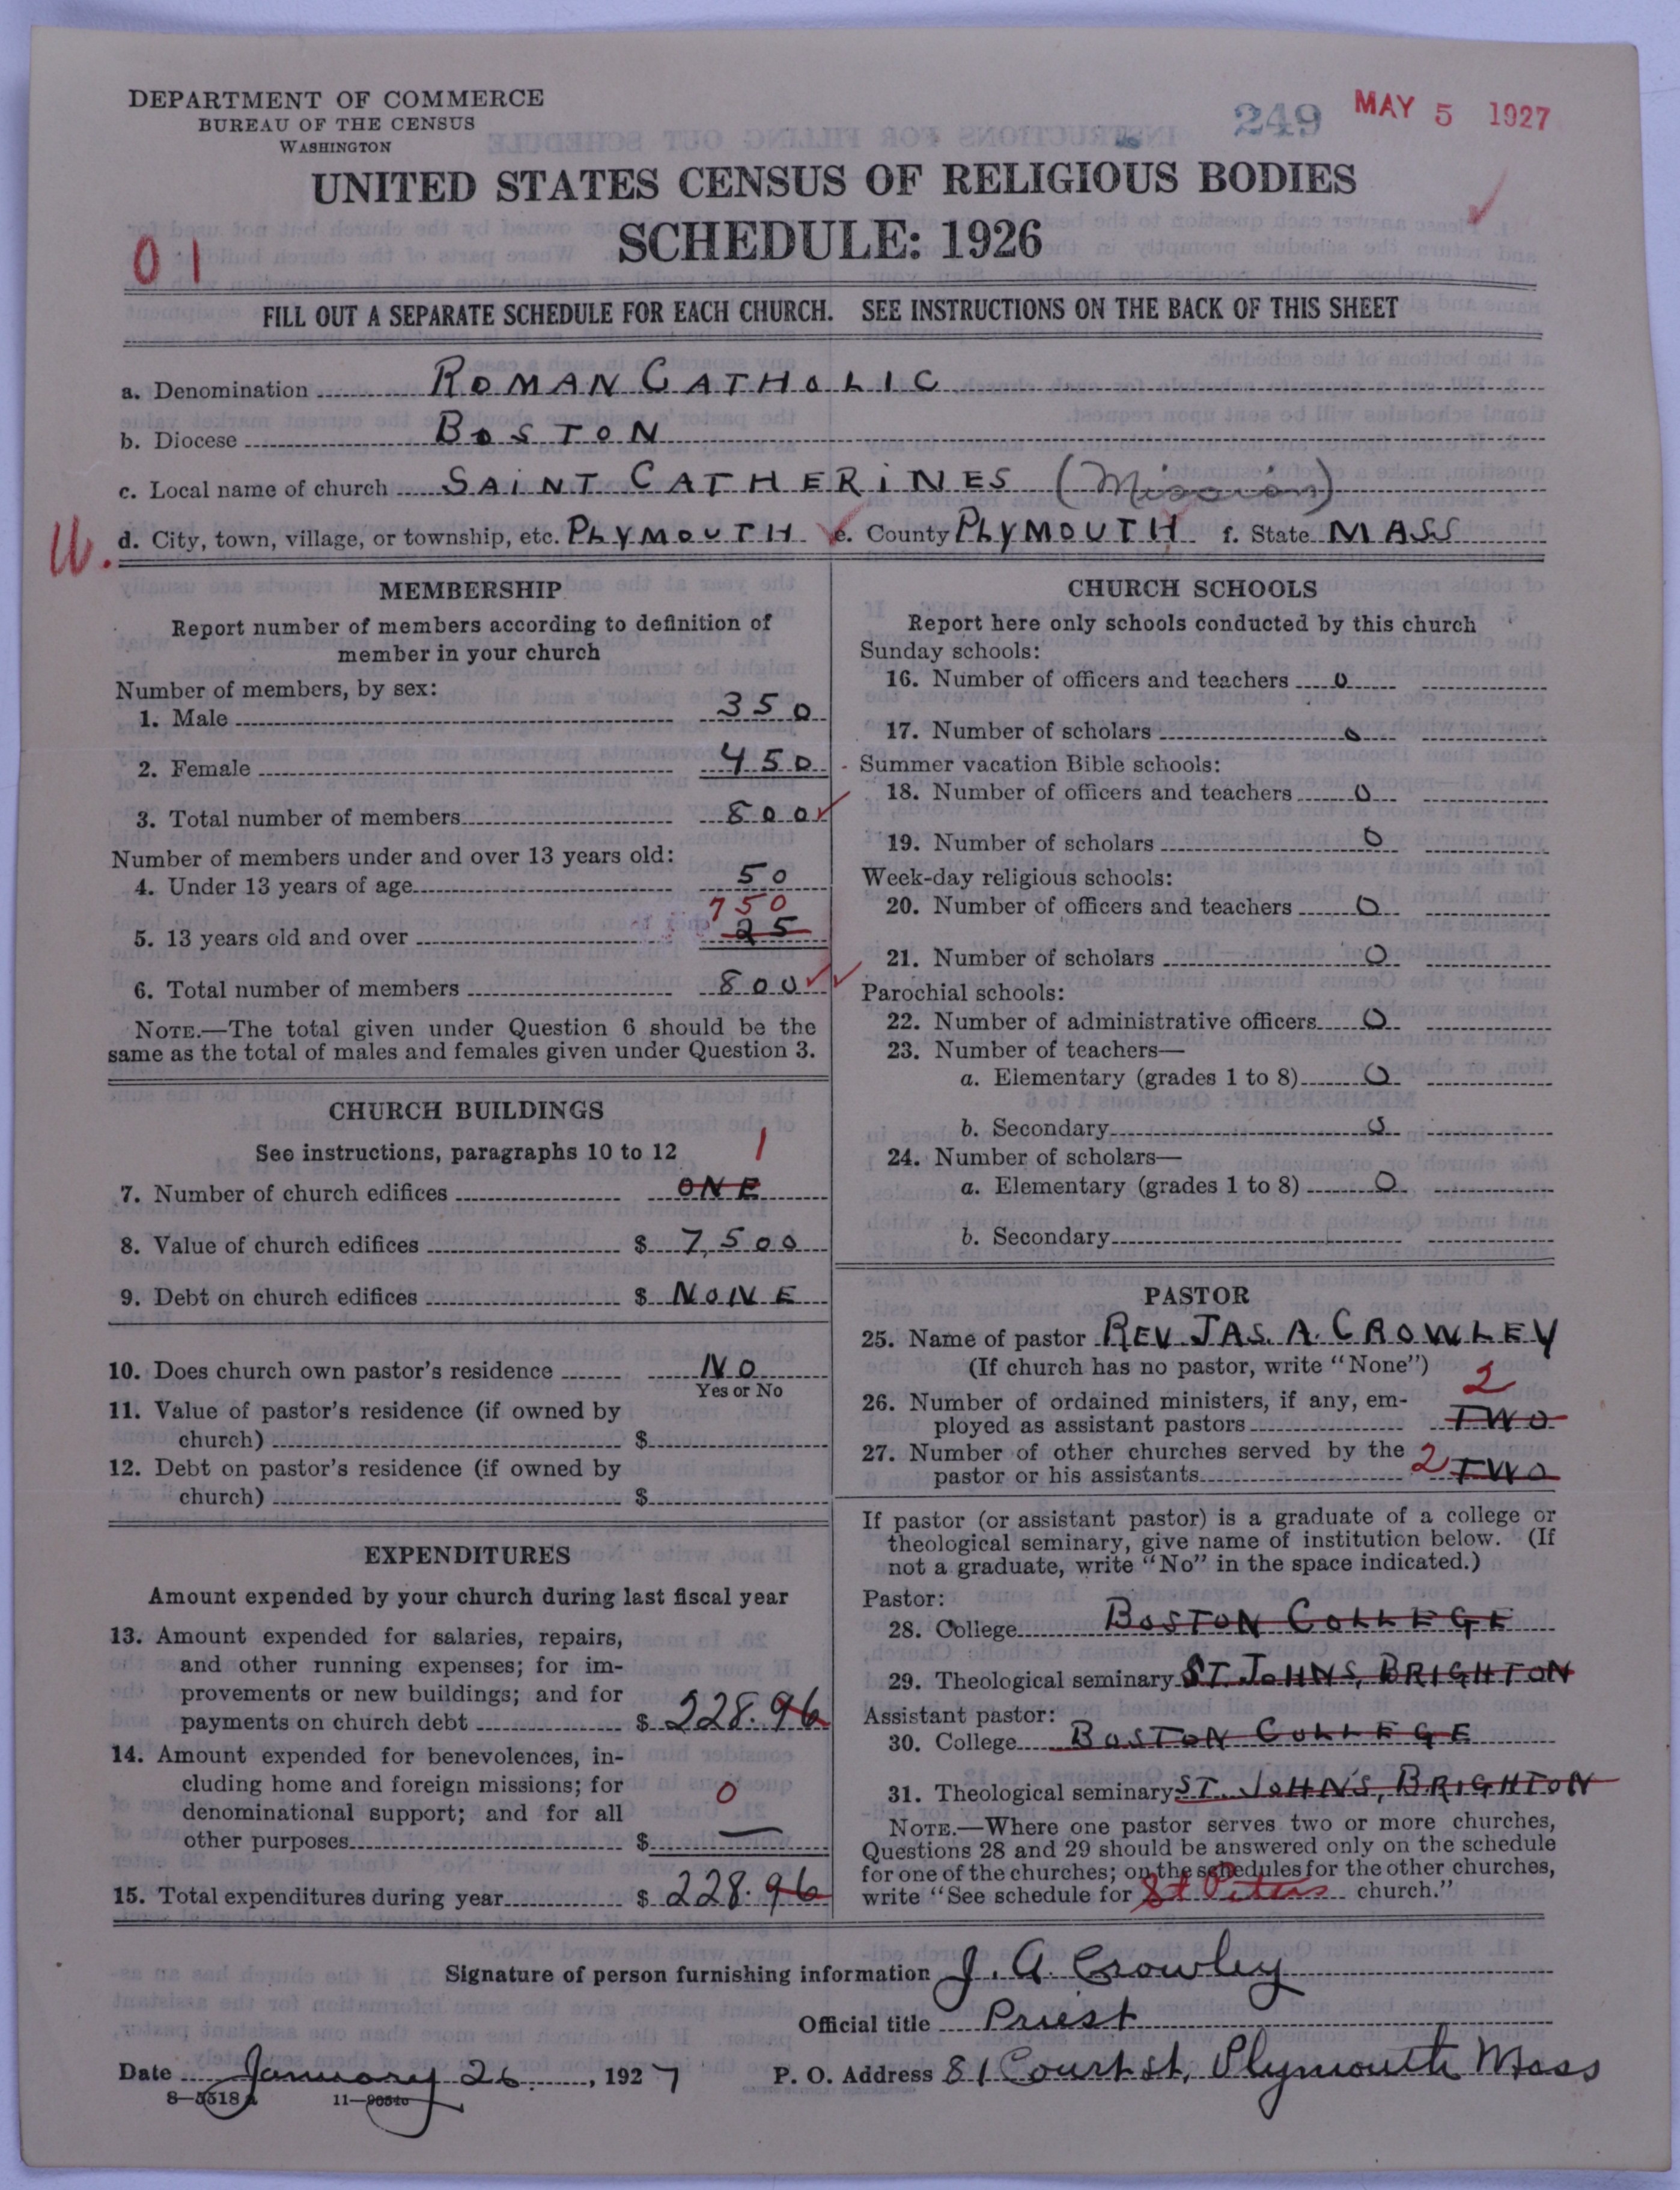 DEPARTMENT OF COMMERCE
BUREAU OF THE CENSUS
WASHINGTON
249 MAY 5 1927
UNITED STATES CENSUS OF RELIGIOUS BODIES
SCHEDULE: 1926
01
FILL OUT A SEPARATE SCHEDULE FOR EACH CHURCH. SEE INSTRUCTIONS ON THE BACK OF THIS SHEET
a. Denomination ROMAN CATHOLIC
b. Diocese BOSTON
c. Local name of church SAINT CATHERINES (Mission)
U. d. City, town, village, or township, etc. PLYMOUTH e. County PLYMOUTH f. State MASS
MEMBERSHIP
Report number of members according to definition of
member in your church
Number of members, by sex:
1. Male 350
2. Female 450
3. Total number of members 800
Number of members under and over 13 years old:
4. Under 13 years of age 50
750
5. 13 years old and over 25
6. Total number of members 800
NOTE.—The total given under Question 6 should be the
same as the total of males and females given under Question 3.
CHURCH BUILDINGS
See instructions, paragraphs 10 to 12
1
7. Number of church edifices ONE
8. Value of church edifices $ 7,500
9. Debt on church edifices $ NONE
10. Does church own pastor's residence NO
Yes or No
11. Value of pastor's residence (if owned by
church) $
12. Debt on pastor's residence (if owned by
church) $
EXPENDITURES
Amount expended by your church during last fiscal year
13. Amount expended for salaries, repairs,
and other running expenses; for im-
provements or new buildings; and for
payments on church debt $ 228.96
14. Amount expended for benevolences, in-
cluding home and foreign missions; for
denominational support; and for all 0
other purposes $ —
15. Total expenditures during year $ 228.96
CHURCH SCHOOLS
Report here only schools conducted by this church
Sunday schools:
16. Number of officers and teachers 0
17. Number of scholars 0
Summer vacation Bible schools:
18. Number of officers and teachers 0
19. Number of scholars 0
Week-day religious schools:
20. Number of officers and teachers 0
21. Number of scholars 0
Parochial schools:
22. Number of administrative officers 0
23. Number of teachers—
a. Elementary (grades 1 to 8) 0
b. Secondary 0
24. Number of scholars—
a. Elementary (grades 1 to 8) 0
b. Secondary
PASTOR
25. Name of pastor REV. JAS. A. CROWLEY
(If church has no pastor, write "None")
26. Number of ordained ministers, if any, em- 2
ployed as assistant pastors TWO
27. Number of other churches served by the
pastor or his assistants 2 TWO
If pastor (or assistant pastor) is a graduate of a college or
theological seminary, give name of institution below. (If
not a graduate, write "No" in the space indicated.)
Pastor:
28. College BOSTON COLLEGE
29. Theological seminary ST. JOHNS, BRIGHTON
Assistant pastor:
30. College BOSTON COLLEGE
31. Theological seminary ST. JOHN'S, BRIGHTON
NOTE.—Where one pastor serves two or more churches,
Questions 28 and 29 should be answered only on the schedule
for one of the churches; on the schedules for the other churches,
write "See schedule for St Peters church."
Signature of person furnishing information J. A. Crowley
Official title Priest
Date January 26, 1927 P. O. Address 81 Court st, Plymouth Mass
8—5518a 11—